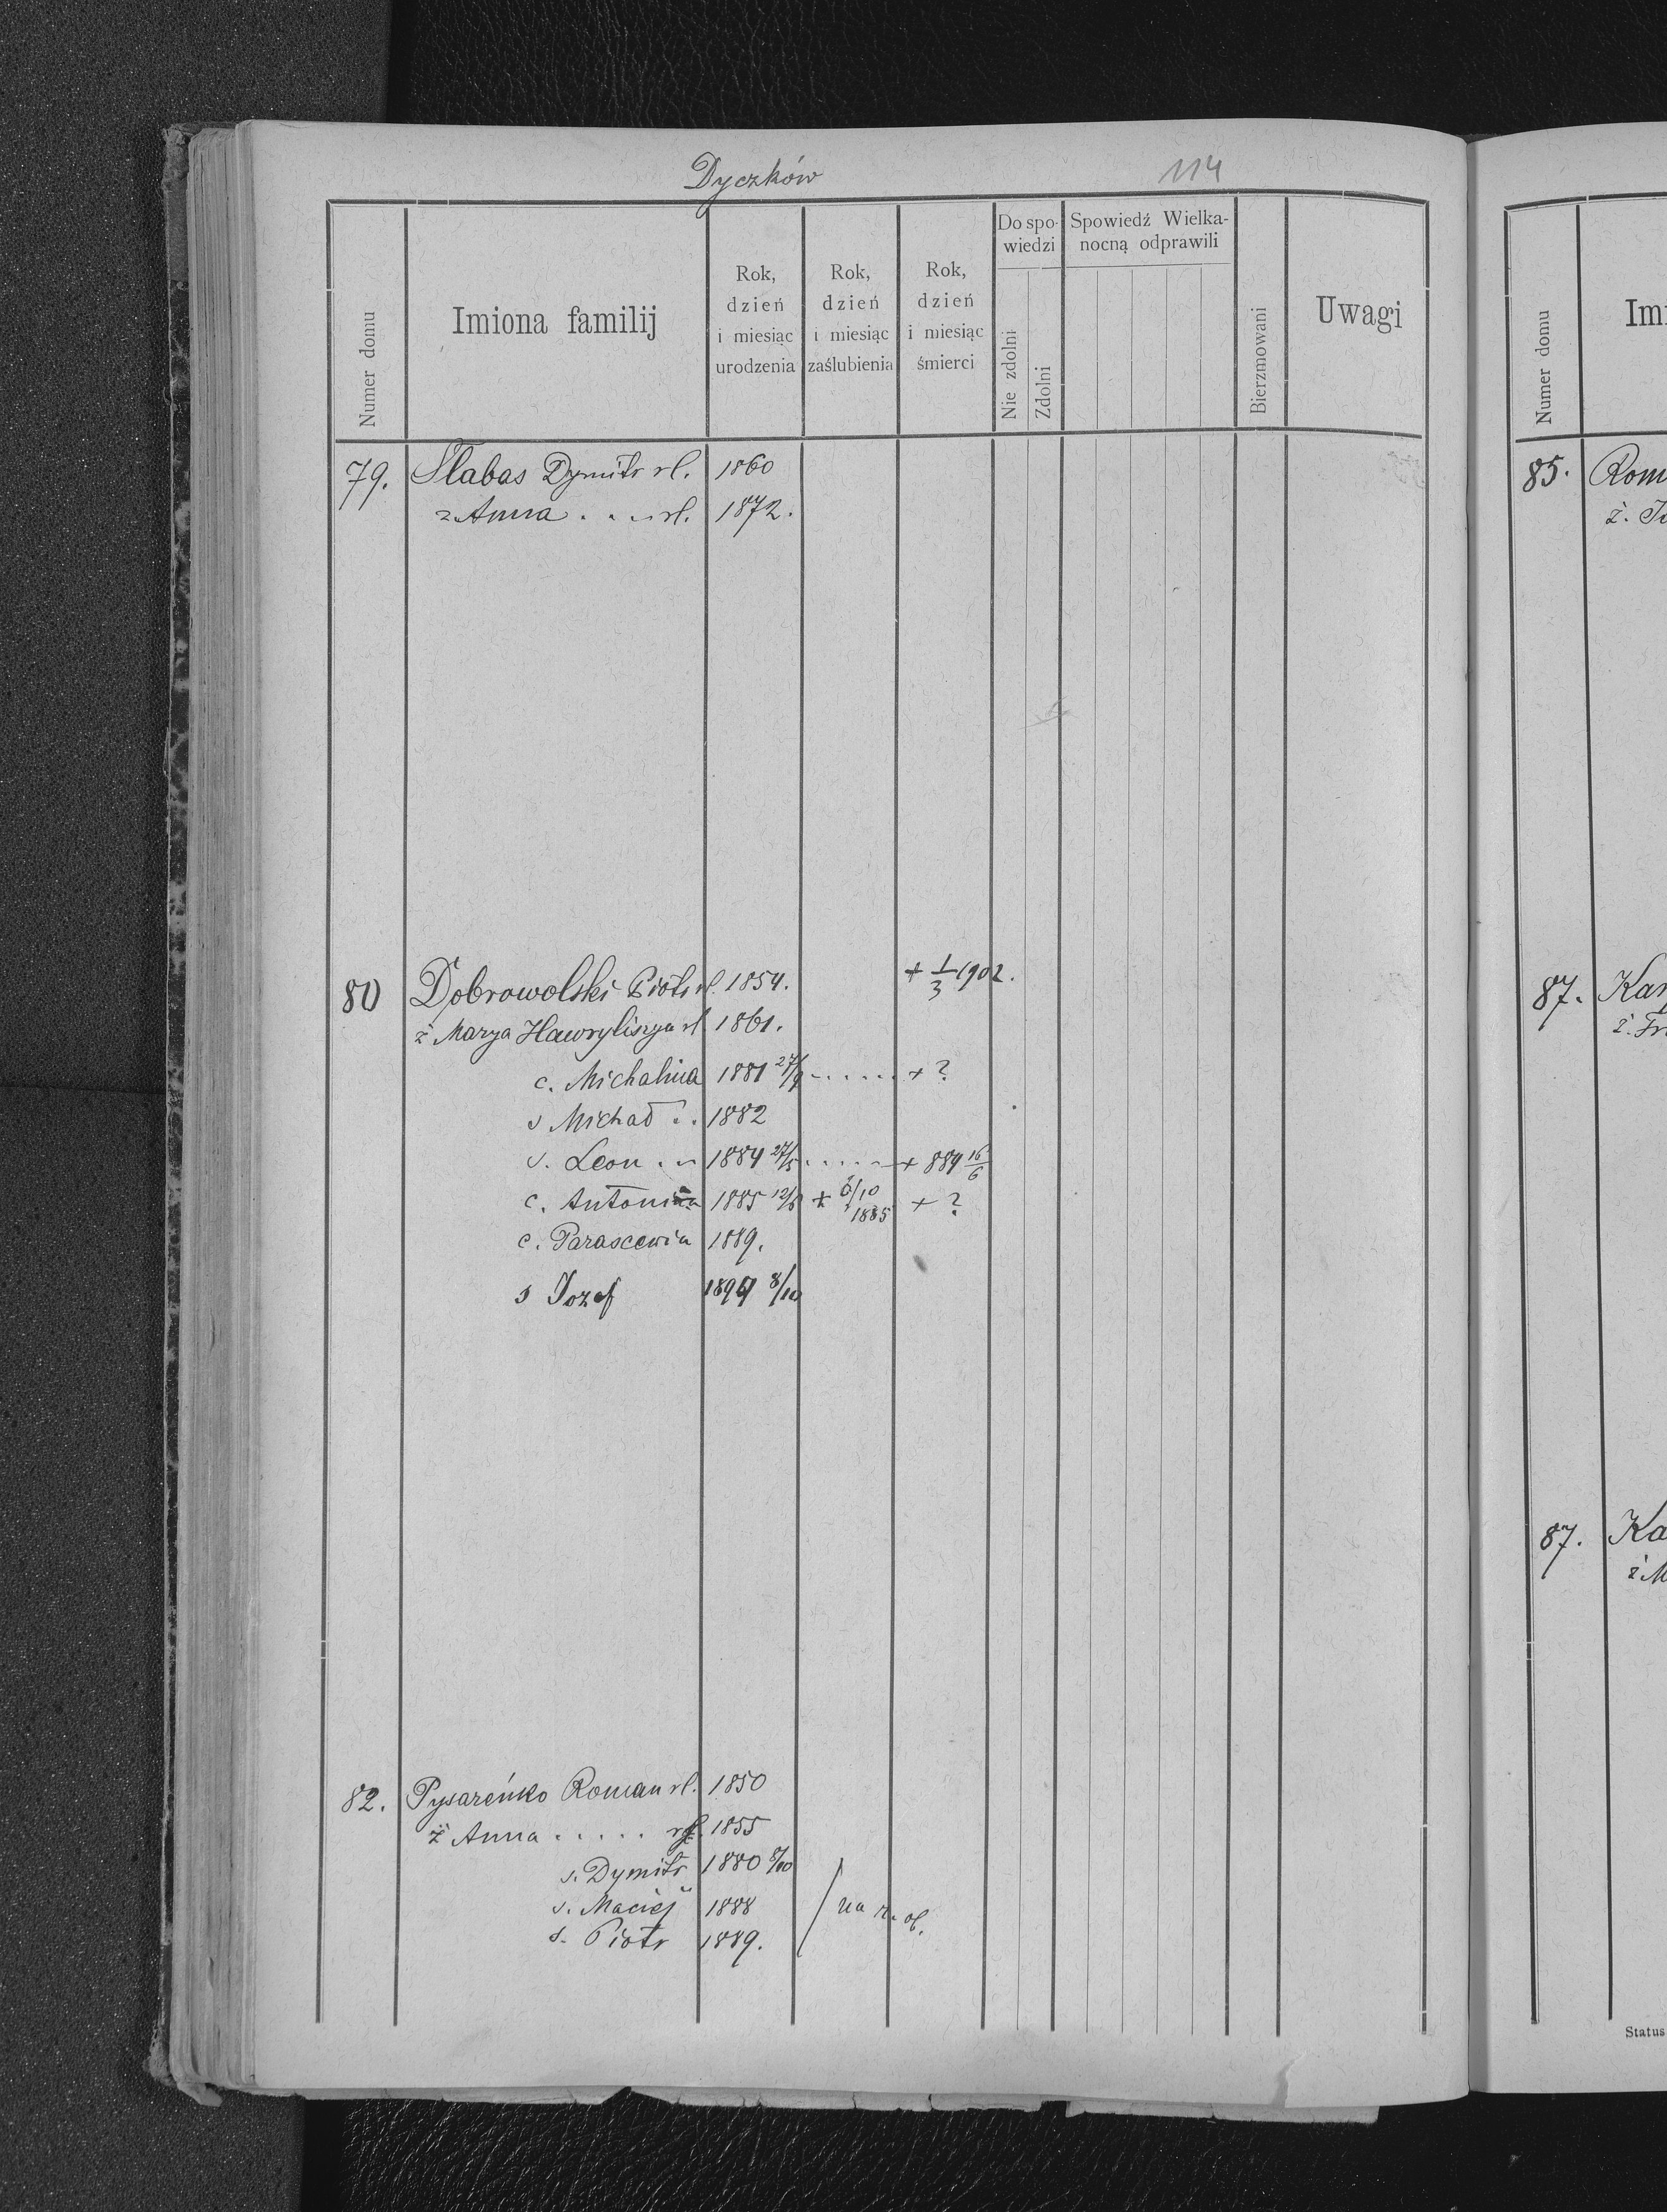 Dyczków 114
Numer domu
Imiona familij
Rok, dzień i miesiąc urodzenia
Rok, dzień i miesiąc zaślubienia
Rok, dzień i miesiąc śmierci
Do spowiedzi
Nie zdolni
Zdolni
Spowiedź Wielkanocną odprawili
Bierzmowani
Uwagi
79. Słabas Dymitr rl. 1860
ż Anna . . . rl. 1872.
80 Dobrowolski Piotr rl. 1854. + 1/3 1902.
ż Marya Hawryliszyn rl. 1861.
c. Michalina 1881 27/9 ...... + ?
s Michał . . 1882
s. Leon . . 1884 27/5 ..... + 884 16/6
c. Antonina 1885 12/8 + 6/10 1885 + ?
c. Parascewia 1889.
s Jozef 8/10
82. Pysareńko Roman rl. 1850
ż Anna . . . . . 1855
s. Dymitr 1880 8/10
s. Maciej 1888 na r. ob.
s. Piotr 1889.
Numer domu
Imi
85. Rom
ż.
87. Kar
ż. Fr
87. Ka
ż M
Status